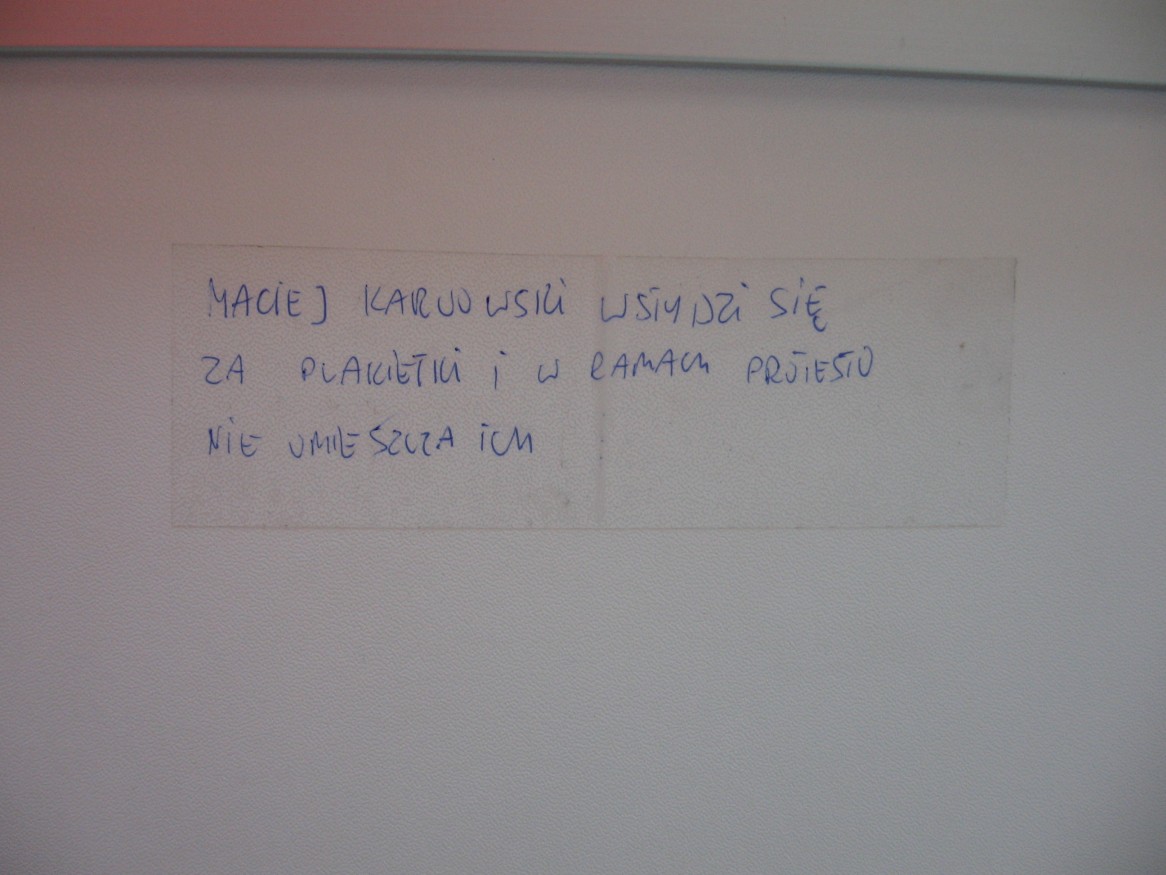 MACIEJ KARWOWSKI WSTYDZI SIĘ
ZA PLAKIETKI I W RAMACH PROTESTU
NIE UMIESZCZA ICH